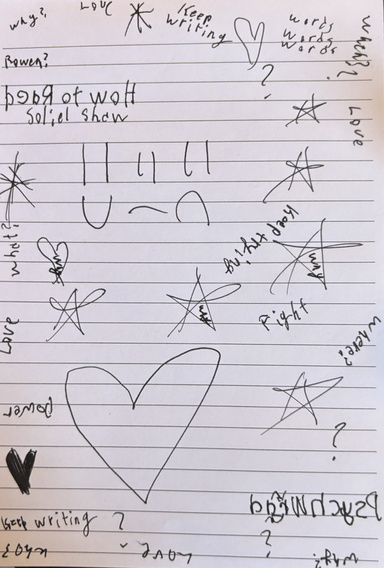 why?
Love
Keep
writing
words
words
words
where?
Power?
How to Read
Soliel Shaw
Love
what?
why
keep trying
why
why
Fight
Love
where?
power
Keep writing ?
Love
why?
?
?
?